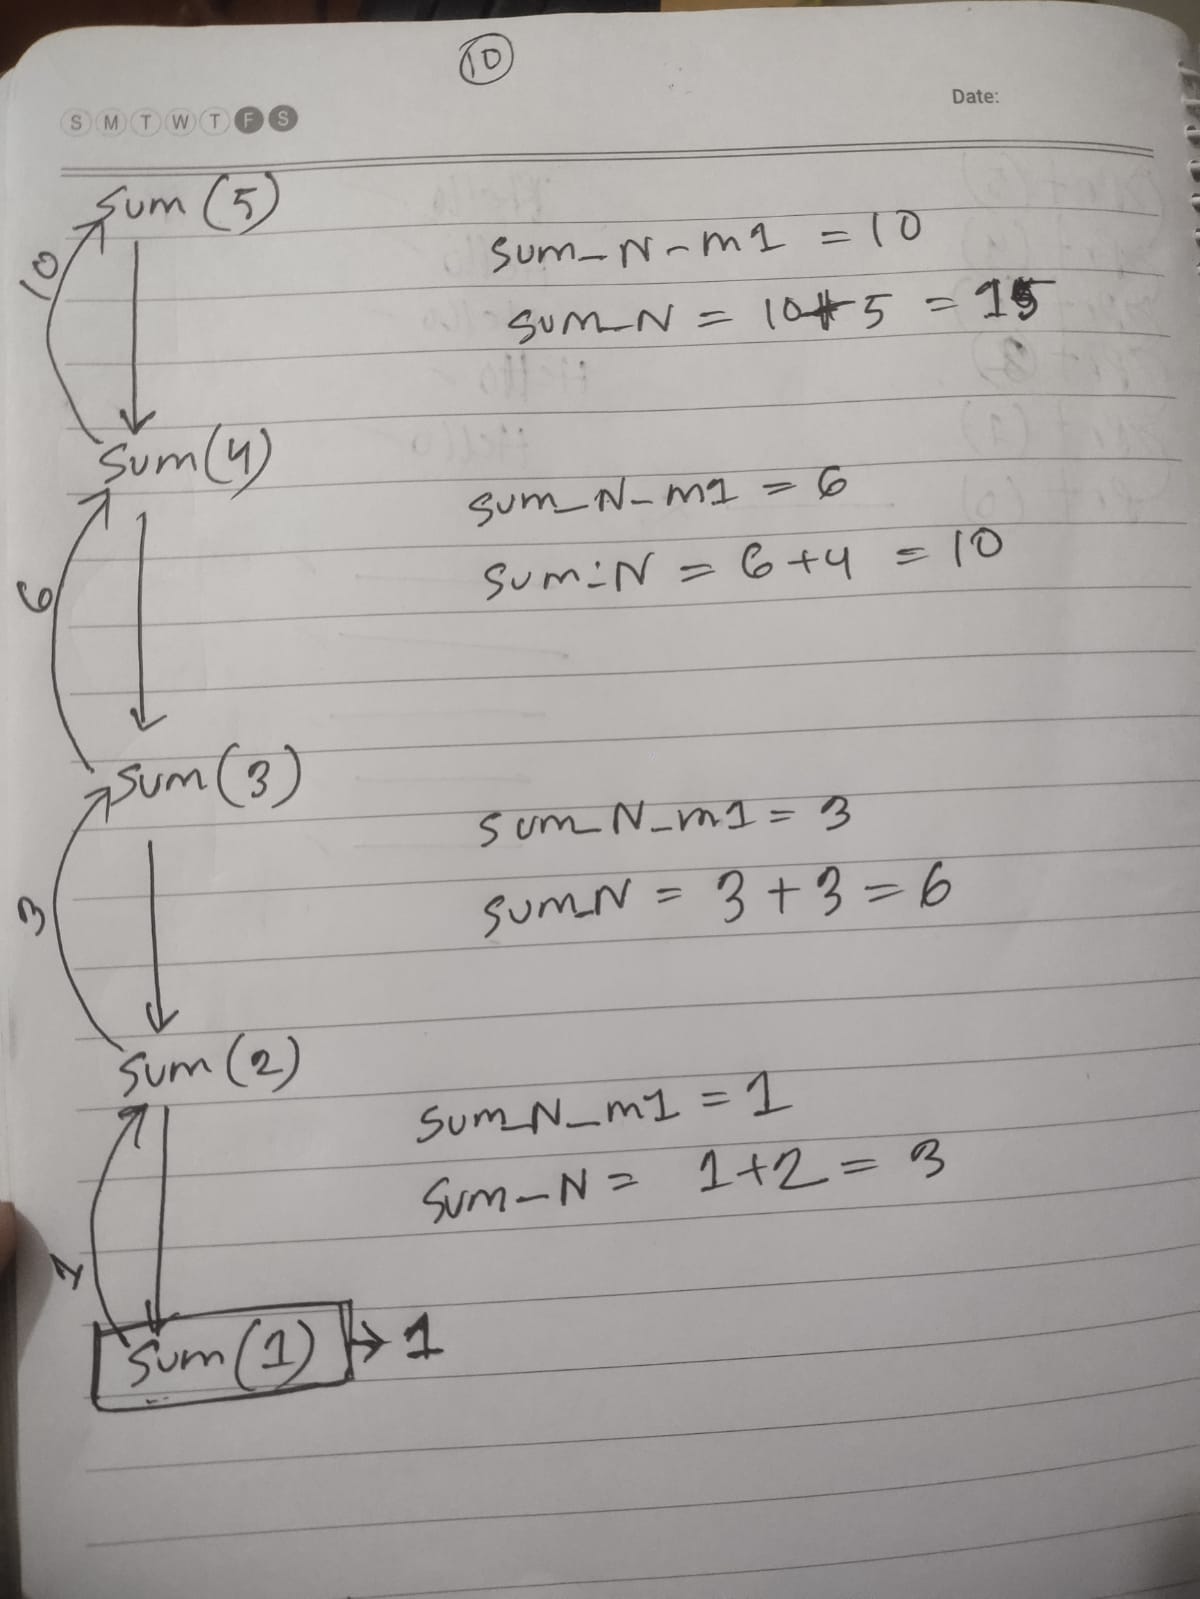 10
S M T W T F S
Date:
Sum (5)
10
Sum_N_m1 = 10
Sum_N = 10+5 = 15
Sum(4)
6
Sum_N_m1 = 6
Sum_N = 6+4 = 10
Sum (3)
3
Sum_N_m1 = 3
Sum_N = 3+3 = 6
Sum (2)
1
Sum_N_m1 = 1
Sum_N = 1+2 = 3
Sum (1) → 1